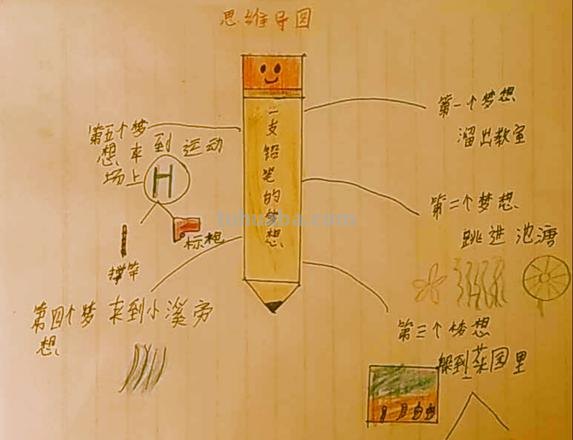 思维导图
一支铅笔的梦想
第一个梦想
溜出教室
第二个梦想
跳进池塘
第三个梦想
躲到菜园里
第四个梦
想
来到小溪旁
第五个梦
想 来到运动
场上
H
撑竿
标枪